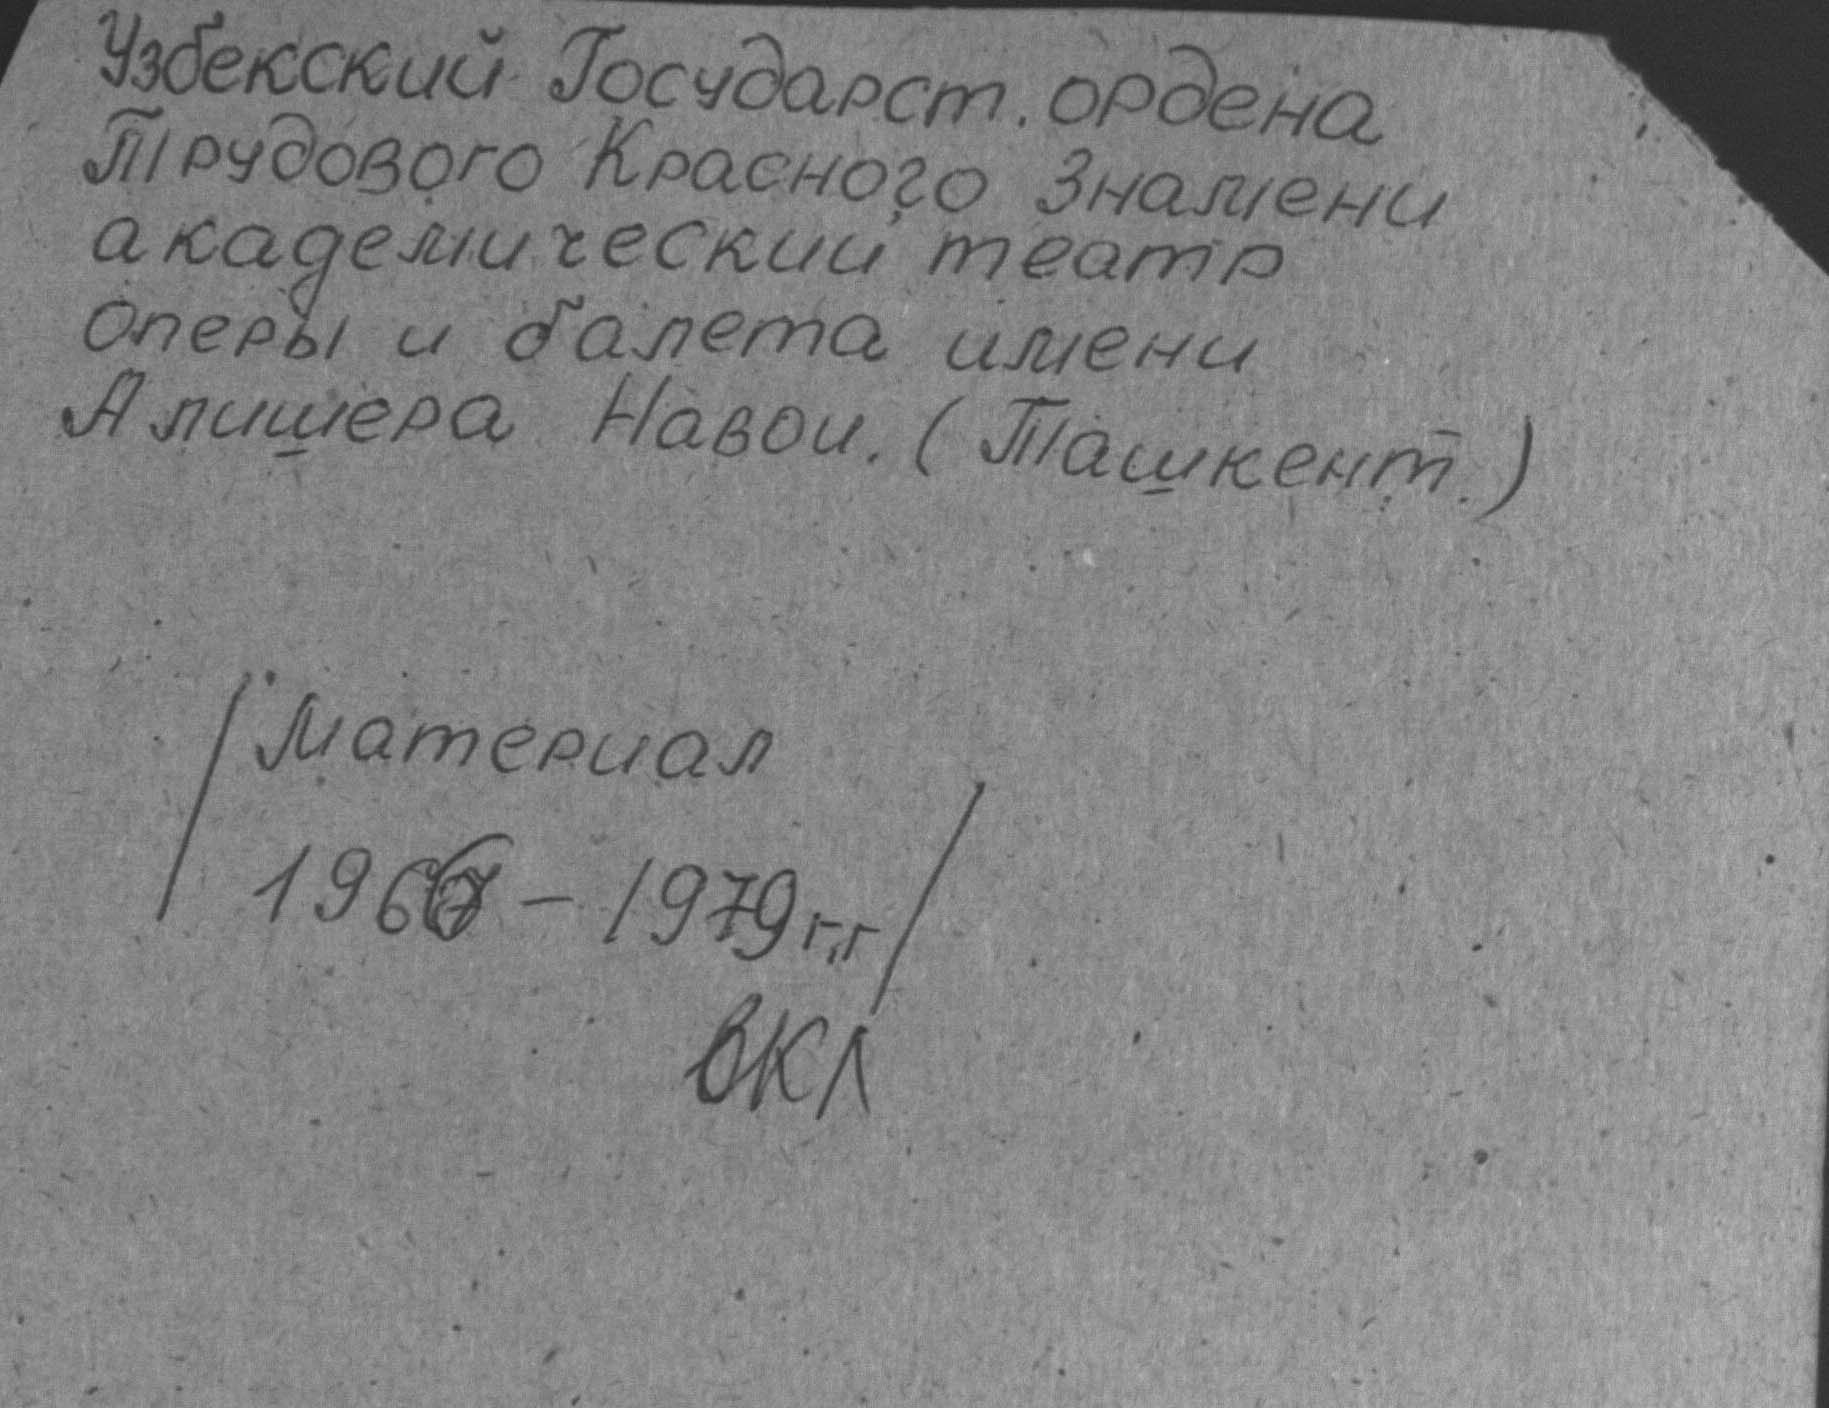 Узбекский Государст. ордена
Трудового Красного Знамени
академический театр
оперы и балета имени
Алишера Навои. (Ташкент.)
/ Материал
1966 – 1979 г.г /
вкл